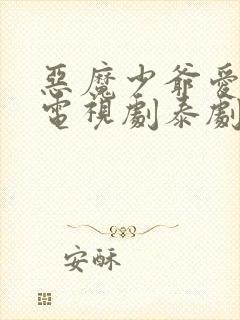 惡魔少爺愛
電視劇泰劇
安酥